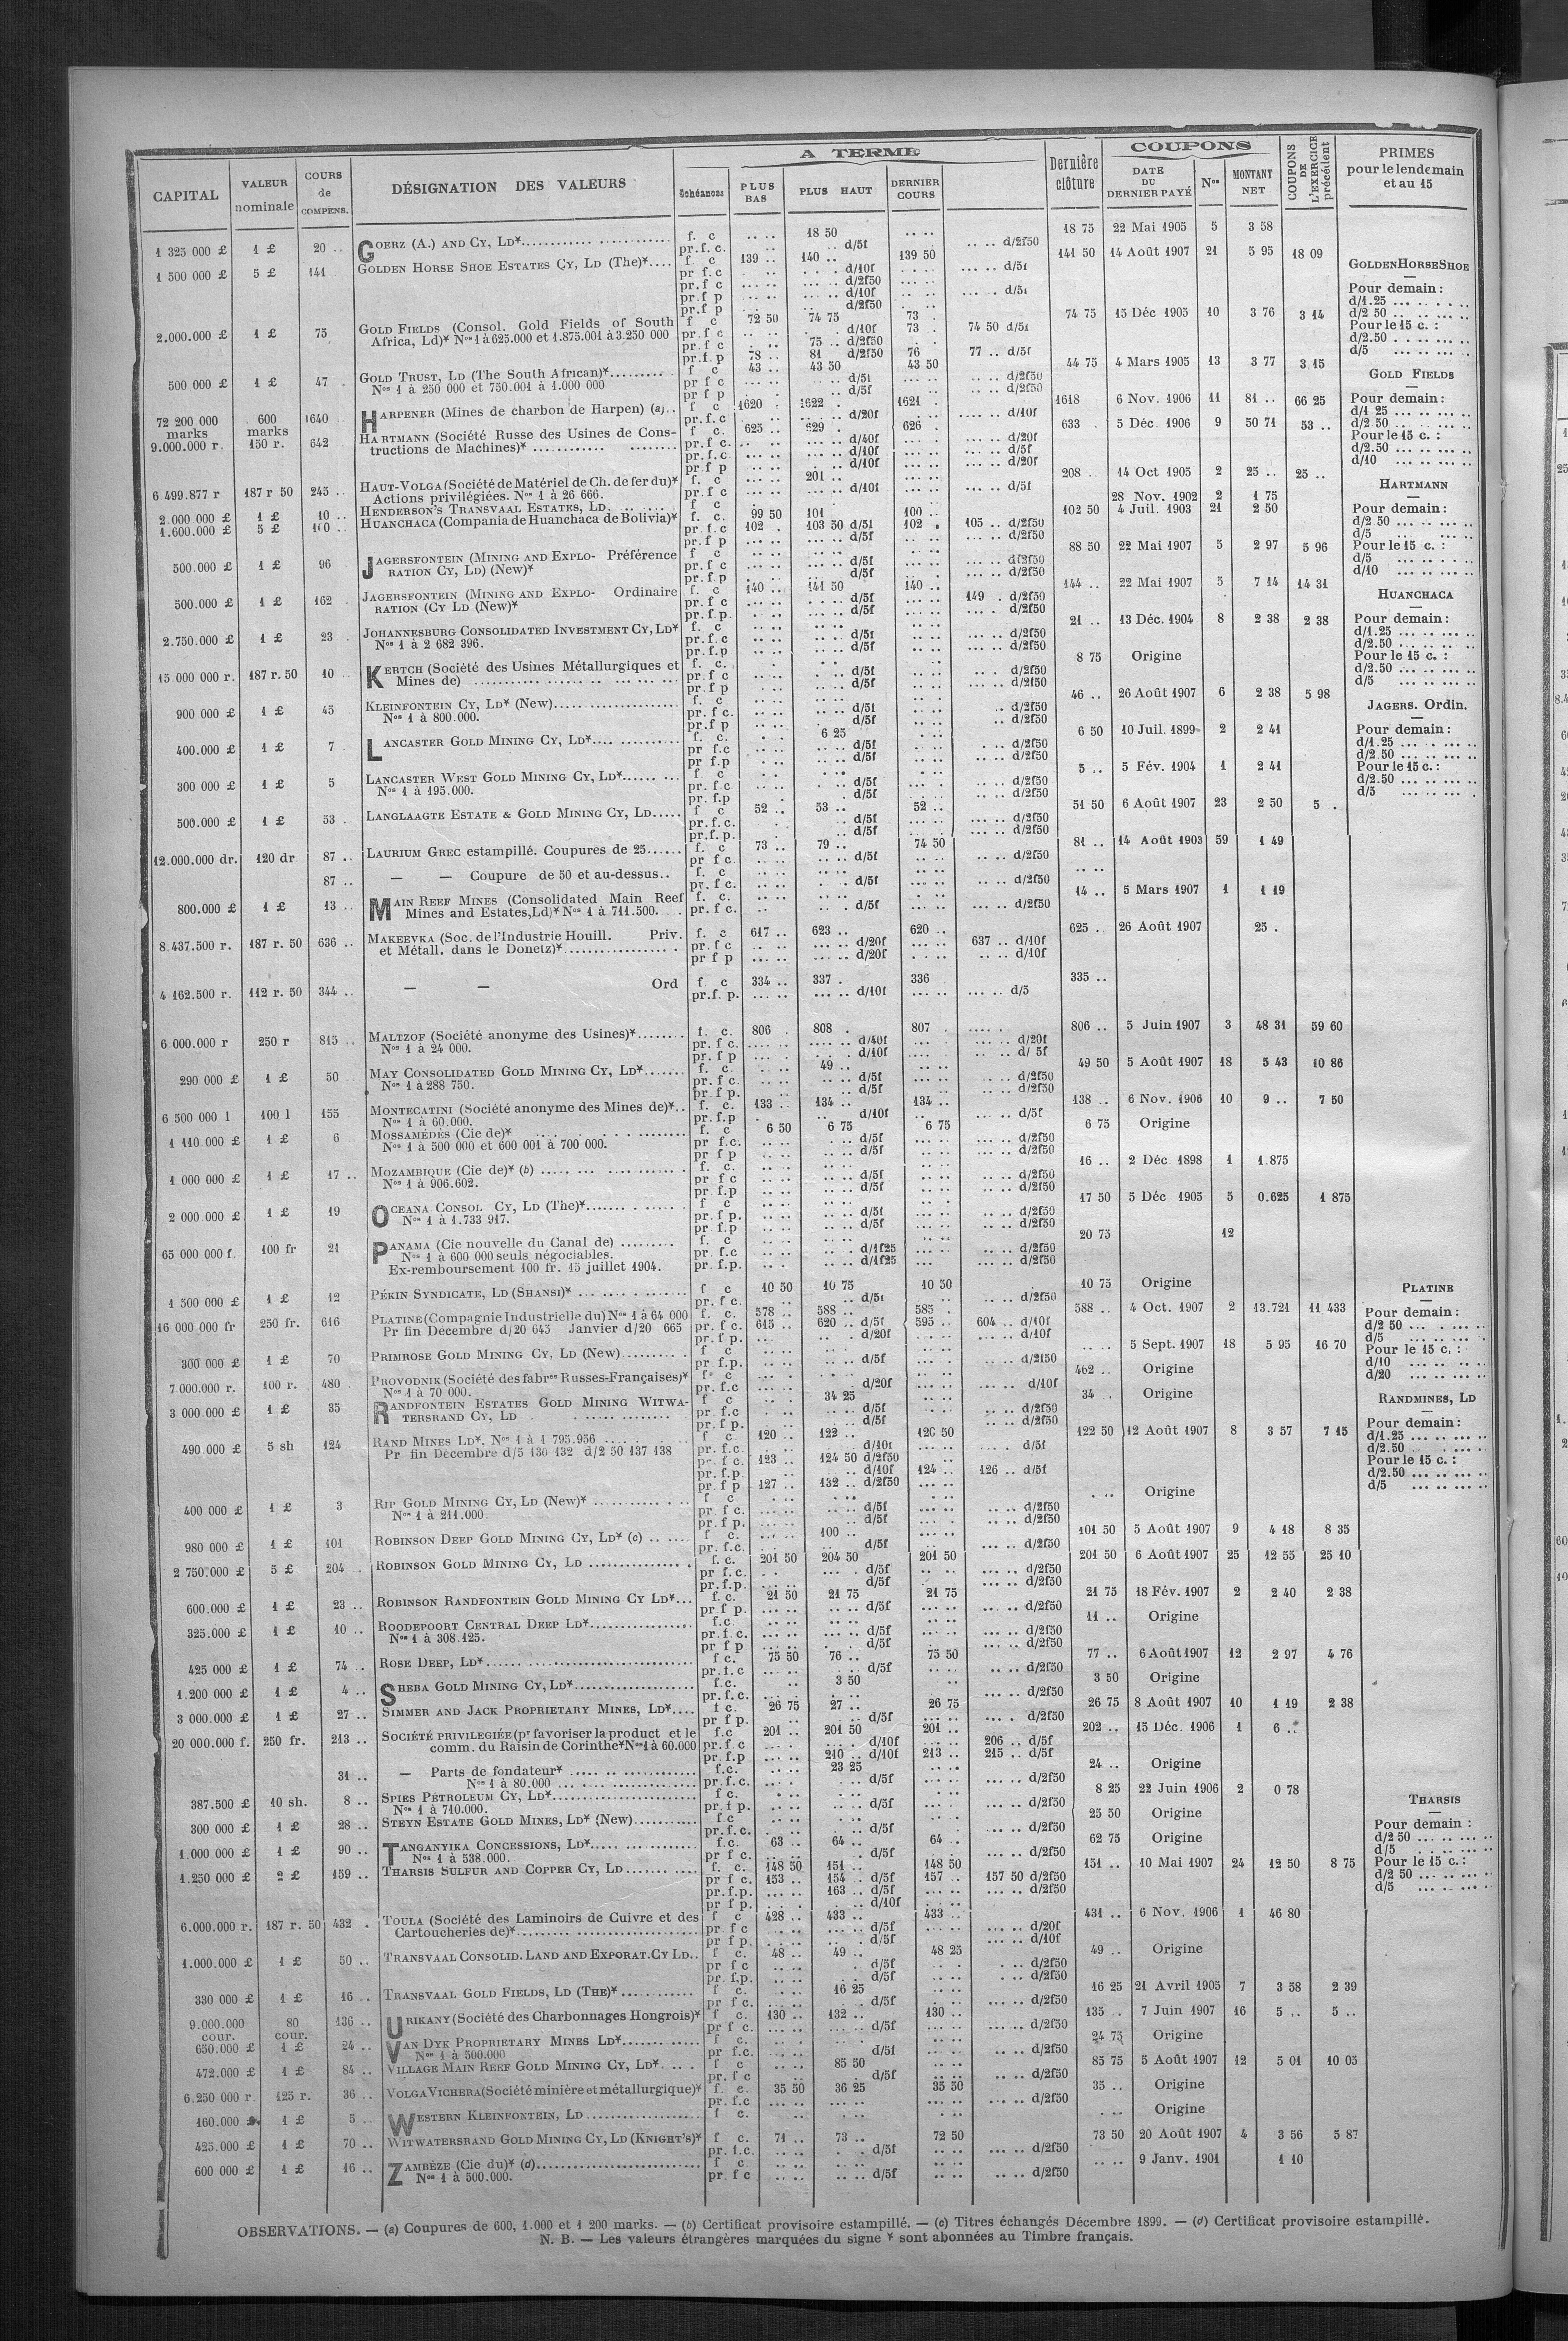 CAPITAL | VALEUR nominale | COURS de COMPENS. | DÉSIGNATION DES VALEURS | Echéances | A TERME | PLUS BAS | PLUS HAUT | DERNIER COURS | Dernière clôture | COUPONS | DATE DU DERNIER PAYÉ | Nos | MONTANT NET | COUPONS DE L'EXERCICE précédent | PRIMES pour le lendemain et au 15
1 325 000 £ 1 £ 20 .. GOERZ (A.) AND CY, LD* f. c 18 50 18 75 22 Mai 1905 5 3 58
pr.f.c. d/5f d/2f50
1 500 000 £ 5 £ 141 GOLDEN HORSE SHOE ESTATES CY, LD (The)* f. c 139 .. 140 .. 139 50 141 50 14 Août 1907 21 5 95 18 09
pr f.c d/10f d/5f
pr.f c d/2f50
pr.f p d/10f d/5f
pr.f p d/2f50
2.000.000 £ 1 £ 75 GOLD FIELDS (Consol. Gold Fields of South f c 72 50 74 75 73 . 74 75 15 Déc 1905 10 3 76 3 14
Africa, Ld)* Nos 1 à 625.000 et 1.875.001 à 3.250 000 pr.f c d/10f 73 . 74 50 d/5f
pr.f c 75 .. d/2f50
pr.f.p 78 .. 81 d/2f50 76 77 .. d/5f
500 000 £ 1 £ 47 . GOLD TRUST, LD (The South African)* f c 43 .. 43 50 43 50 44 75 4 Mars 1905 13 3 77 3 15
Nos 1 à 250 000 et 750.001 à 1.000 000 pr f c d/5f d/2f50
pr f p d/5f d/2f50
72 200 000 marks 600 marks 1640 HARPENER (Mines de charbon de Harpen) (a) f c 1620 . 1622 . 1621 . 1618 6 Nov. 1906 11 81 .. 66 25
pr.f.c d/20f d/10f
9.000.000 r. 150 r. 642 HARTMANN (Société Russe des Usines de Cons- f c. 625 .. 629 . 626 . 633 . 5 Déc. 1906 9 50 71 53 ..
tructions de Machines)* pr.f c. d/40f d/20f
pr.f.c d/10f d/5f
pr.f p d/10f d/20f
6 499.877 r 187 r 50 245 .. HAUT-VOLGA (Société de Matériel de Ch. de fer du)* f. c 201 .. 208 . 14 Oct 1905 2 25 .. 25 ..
Actions privilégiées. Nos 1 à 26 666. pr.f c d/10f d/5f
2.000 000 £ 1 £ 10 .. HENDERSON'S TRANSVAAL ESTATES, LD. f c 28 Nov. 1902 2 1 75
1.600.000 £ 5 £ 100 .. HUANCHACA (Compania de Huanchaca de Bolivia)* f. c. 99 50 101 100 .. 102 50 4 Juil. 1903 21 2 50
pr.f.c 102 . 103 50 d/5f 102 . 105 .. d/2f50
pr.f p d/5f d/2f50
500.000 £ 1 £ 96 JAGERSFONTEIN (MINING AND EXPLO- Préférence f c 88 50 22 Mai 1907 5 2 97 5 96
RATION CY, LD) (New)* pr.f c d/5f d/2f50
pr.f.p d/5f d/2f50
500.000 £ 1 £ 162 JAGERSFONTEIN (MINING AND EXPLO- Ordinaire f. c 140 .. 141 50 140 .. 144 .. 22 Mai 1907 5 7 14 14 31
RATION (CY LD (New)* pr.f c d/5f 149 . d/2f50
pr.f.p. d/5f d/2f50
2.750.000 £ 1 £ 23 . JOHANNESBURG CONSOLIDATED INVESTMENT CY, LD* f. c 21 .. 13 Déc. 1904 8 2 38 2 38
Nos 1 à 2 682 396. pr.f.c d/5f d/2f50
pr.f.p d/5f d/2f50
15 000 000 r. 187 r. 50 10 .. KERTCH (Société des Usines Métallurgiques et f. c. 8 75 Origine
Mines de) pr.f c d/5f d/2f50
pr.f p d/5f d/2f50
900 000 £ 1 £ 45 KLEINFONTEIN CY, LD* (New) f. c 46 .. 26 Août 1907 6 2 38 5 98
Nos 1 à 800.000. pr.f c. d/5f d/2f50
pr.f p d/5f d/2f50
400.000 £ 1 £ 7 . LANCASTER GOLD MINING CY, LD* f. c. 6 25 6 50 10 Juil. 1899 2 2 41
pr f.c d/5f d/2f50
pr f.p d/5f d/2f50
300 000 £ 1 £ 5 LANCASTER WEST GOLD MINING CY, LD* f c 5 .. 5 Fév. 1904 1 2 41
Nos 1 à 195.000. pr. f.c d/5f d/2f50
pr. f.p d/5f d/2f50
500.000 £ 1 £ 53 . LANGLAAGTE ESTATE & GOLD MINING CY, LD f c 52 .. 53 .. 52 .. 51 50 6 Août 1907 23 2 50 5 .
pr.f.c. d/5f d/2f50
pr.f.p. d/5f d/2f50
12.000.000 dr. 120 dr 87 .. LAURIUM GREC estampillé. Coupures de 25 f. c 73 .. 79 .. 74 50 81 .. 14 Août 1903 59 1 49
pr f c d/5f d/2f50
87 .. — — Coupure de 50 et au-dessus.. f. c
pr. f c. d/5f d/2f50
800.000 £ 1 £ 13 .. MAIN REEF MINES (Consolidated Main Reef f. c. 14 .. 5 Mars 1907 1 1 19
Mines and Estates, Ld)* Nos 1 à 711.500. pr. f c. d/5f d/2f50
8.437.500 r. 187 r. 50 636 .. MAKEEVKA (Soc. de l'Industrie Houill. Priv. f. c 617 .. 623 .. 620 .. 625 . 26 Août 1907 25 .
et Métall. dans le Donetz)* pr.f c d/20f 637 .. d/10f
pr f p d/20f d/10f
4 162.500 r. 112 r. 50 344 .. — — Ord f c 334 .. 337 . 336 335 ..
pr.f. p. d/10f d/5
6 000.000 r 250 r 815 .. MALTZOF (Société anonyme des Usines)* f. c. 806 . 808 . 807 . 806 .. 5 Juin 1907 3 48 31 59 60
Nos 1 à 24 000. pr. f c. d/40f d/20f
pr. f p d/10f d/ 5f
290 000 £ 1 £ 50 MAY CONSOLIDATED GOLD MINING CY, LD* f. c. 49 .. 49 50 5 Août 1907 18 5 43 10 86
Nos 1 à 288 750. pr. f c. d/5f d/2f50
pr. f p. d/5f d/2f50
6 500 000 l 100 l 155 MONTECATINI (Société anonyme des Mines de)* f. c. 133 .. 134 .. 134 .. 138 .. 6 Nov. 1906 10 9 .. 7 50
Nos 1 à 60.000. pr.f.p d/10f d/5f
1 110 000 £ 1 £ 6 MOSSAMÉDÈS (Cie de)* f. c 6 50 6 75 6 75 6 75 Origine
Nos 1 à 500 000 et 600 001 à 700 000. pr f.c. d/5f d/2f50
pr f p d/5f d/2f50
1 000 000 £ 1 £ 17 .. MOZAMBIQUE (Cie de)* (b) f. c. 16 .. 2 Déc 1898 1 1.875
Nos 1 à 906.602. pr f c d/5f d/2f50
pr f.p d/5f d/2f50
2 000 000 £ 1 £ 19 OCEANA CONSOL CY, LD (The)* f c 17 50 5 Déc 1905 5 0.625 1 875
Nos 1 à 1.733 917. pr. f p. d/5f d/2f50
pr f.p d/5f d/2f50
65 000 000 f. 100 fr 21 PANAMA (Cie nouvelle du Canal de) f. c 20 75 12
Nos 1 à 600 000 seuls négociables. pr. f.c d/1f25 d/2f50
Ex-remboursement 100 fr. 15 juillet 1904. pr. f.p. d/1f25 d/2f50
1 500 000 £ 1 £ 12 PÉKIN SYNDICATE, LD (SHANSI)* f c 10 50 10 75 10 50 10 75 Origine
pr. f c. d/5f d/2f50
16 000 000 fr 250 fr. 616 PLATINE (Compagnie Industrielle du) Nos 1 à 64 000 f. c. 578 .. 588 .. 585 . 588 .. 4 Oct. 1907 2 13.721 11 433
Pr fin Decembre d/20 645 Janvier d/20 665 pr. f c. 615 .. 620 .. d/5f 595 .. 604 .. d/10f
pr. f p. d/20f d/10f
300 000 £ 1 £ 70 PRIMROSE GOLD MINING CY, LD (New) f c 5 Sept. 1907 18 5 95 16 70
pr. f.p. d/5f d/2f50
7.000.000 r. 100 r. 480 . PROVODNIK (Société des fabres Russes-Françaises)* f. c 462 .. Origine
Nos 1 à 70 000. pr. f.c d/20f d/10f
3 000.000 £ 1 £ 35 RANDFONTEIN ESTATES GOLD MINING WITWA- f c 34 25 34 . Origine
TERSRAND CY, LD pr. f.c d/5f d/2f50
pr. f p. d/5f d/2f50
490.000 £ 5 sh 124 RAND MINES LD*, Nos 1 à 1 795.956 f c. 120 .. 122 .. 120 50 122 50 12 Août 1907 8 3 57 7 15
Pr fin Decembre d/5 130 132 d/2 50 137 138 pr. f.c. d/10f d/5f
pr. f c. 123 .. 124 50 d/2f50
pr. f.p. d/10f 124 .. 126 .. d/5f
pr f p 127 .. 132 .. d/2f50
400 000 £ 1 £ 3 RIP GOLD MINING CY, LD (New)* f c Origine
Nos 1 à 211.000. pr. f c. d/5f d/2f50
pr. f p. d/5f d/2f50
980 000 £ 1 £ 101 ROBINSON DEEP GOLD MINING CY, LD* (c) f c. 100 .. 101 50 5 Août 1907 9 4 18 8 35
pr. f.c. d/5f d/2f50
2 750.000 £ 5 £ 204 .. ROBINSON GOLD MINING CY, LD f. c. 201 50 204 50 201 50 201 50 6 Août 1907 25 12 55 25 10
pr f.c. d/5f d/2f50
pr. f.p. d/5f d/2f50
600.000 £ 1 £ 23 .. ROBINSON RANDFONTEIN GOLD MINING CY LD* f. c. 21 50 21 75 21 75 21 75 18 Fév. 1907 2 2 40 2 38
pr.f p. d/5f d/2f50
325.000 £ 1 £ 10 .. ROODEPOORT CENTRAL DEEP LD* f.c. 11 .. Origine
Nos 1 à 308.125. pr. f. c. d/5f d/2f50
pr f p d/5f d/2f50
425 000 £ 1 £ 74 .. ROSE DEEP, LD* f c. 75 50 76 .. 75 50 77 .. 6 Août 1907 12 2 97 4 76
pr.f.c d/5f d/2f50
1.200 000 £ 1 £ 4 .. SHEBA GOLD MINING CY, LD* f.c. 3 50 3 50 Origine
pr. f.c. d/2f50
3 000.000 £ 1 £ 27 .. SIMMER AND JACK PROPRIETARY MINES, LD* f c. 26 75 27 .. 26 75 26 75 8 Août 1907 10 1 19 2 38
pr f p. d/5f d/2f50
20 000.000 f. 250 fr. 213 .. SOCIÉTÉ PRIVILEGIÉE (pr favoriser la product et le f.c 201 .. 201 50 201 .. 202 .. 15 Déc. 1906 1 6 ..
comm. du Raisin de Corinthe* Nos 1 à 60.000 pr. f. c d/10f 206 .. d/5f
pr. f.p 210 .. d/10f 213 .. 215 .. d/5f
31 .. — Parts de fondateur* f.c. 23 25 24 .. Origine
Nos 1 à 80.000 pr. f.c. d/5f d/2f50
387.500 £ 10 sh. 8 .. SPIES PETROLEUM CY, LD* f c. 8 25 22 Juin 1906 2 0 78
Nos 1 à 710.000. pr. f p. d/5f d/2f50
300 000 £ 1 £ 28 .. STEYN ESTATE GOLD MINES, LD* (New) f.c 25 50 Origine
pr. f.c. d/5f d/2f50
1.000 000 £ 1 £ 90 .. TANGANYIKA CONCESSIONS, LD* f.c. 63 .. 64 .. 64 .. 62 75 Origine
Nos 1 à 538.000. pr f c. d/5f d/2f50
1.250 000 £ 2 £ 159 .. THARSIS SULFUR AND COPPER CY, LD f. c. 148 50 151 .. 148 50 151 .. 10 Mai 1907 24 12 50 8 75
pr f c. 153 .. 154 .. d/5f 157 .. 157 50 d/2f50
pr. f.p. 163 .. d/5f d/2f50
pr f p. d/10f
6.000.000 r. 187 r. 50 432 . TOULA (Société des Laminoirs de Cuivre et des f c 428 .. 433 .. 433 .. 431 .. 6 Nov. 1906 1 46 80
Cartoucheries de)* pr. f c d/5f d/20f
pr f p. d/5f d/10f
1.000.000 £ 1 £ 50 .. TRANSVAAL CONSOLID. LAND AND EXPORAT. CY LD.. f c. 48 .. 49 .. 48 25 49 .. Origine
pr f c d/5f d/2f50
pr. f.p. d/5f d/2f50
330 000 £ 1 £ 16 .. TRANSVAAL GOLD FIELDS, LD (THE)* f c. 16 25 16 25 21 Avril 1905 7 3 58 2 39
pr f c. d/5f d/2f50
9.000.000 cour. 80 cour. 136 .. URIKANY (Société des Charbonnages Hongrois)* f c. 130 .. 132 .. 130 .. 135 .. 7 Juin 1907 16 5 .. 5 ..
pr f c. d/5f d/2f50
650.000 £ 1 £ 24 .. VAN DYK PROPRIETARY MINES LD* f c. 24 75 Origine
Nos 1 à 500.000 pr f.c. d/5f d/2f50
472.000 £ 1 £ 84 .. VILLAGE MAIN REEF GOLD MINING CY, LD* f c 85 50 85 75 5 Août 1907 12 5 01 10 05
pr. f c d/5f d/2f50
6.250 000 r. 125 r. 36 .. VOLGA VICHERA (Société minière et métallurgique)* f. c. 35 50 36 25 35 50 35 .. Origine
pr. f.c d/2f50
160.000 £ 1 £ 5 .. WESTERN KLEINFONTEIN, LD f c. Origine
425.000 £ 1 £ 70 .. WITWATERSRAND GOLD MINING CY, LD (KNIGHT'S)* f c. 71 .. 73 .. 72 50 73 50 20 Août 1907 4 3 56 5 87
pr. f.c. d/5f d/2f50
600 000 £ 1 £ 16 .. ZAMBÈZE (Cie du)* (d) f c 9 Janv. 1901 1 10
Nos 1 à 500.000. pr. f c d/5f d/2f50
GOLDEN HORSE SHOE
Pour demain :
d/1.25
d/2 50
Pour le 15 c. :
d/2.50
d/5
GOLD FIELDS
Pour demain :
d/1 25
d/2 50
Pour le 15 c. :
d/2.50
d/10
HARTMANN
Pour demain :
d/2 50
d/5
Pour le 15 c. :
d/5
d/10
HUANCHACA
Pour demain :
d/1.25
d/2.50
Pour le 15 c. :
d/2.50
d/5
JAGERS. Ordin.
Pour demain :
d/1.25
d/2 50
Pour le 15 c. :
d/2.50
d/5
PLATINE
Pour demain :
d/2 50
d/5
Pour le 15 c. :
d/10
d/20
RANDMINES, LD
Pour demain :
d/1.25
d/2.50
Pour le 15 c. :
d/2.50
d/5
THARSIS
Pour demain :
d/2 50
d/5
Pour le 15 c. :
d/2 50
d/5
OBSERVATIONS. — (a) Coupures de 600, 1.000 et 1 200 marks. — (b) Certificat provisoire estampillé. — (c) Titres échangés Décembre 1899. — (d) Certificat provisoire estampillé.
N. B. — Les valeurs étrangères marquées du signe * sont abonnées au Timbre français.